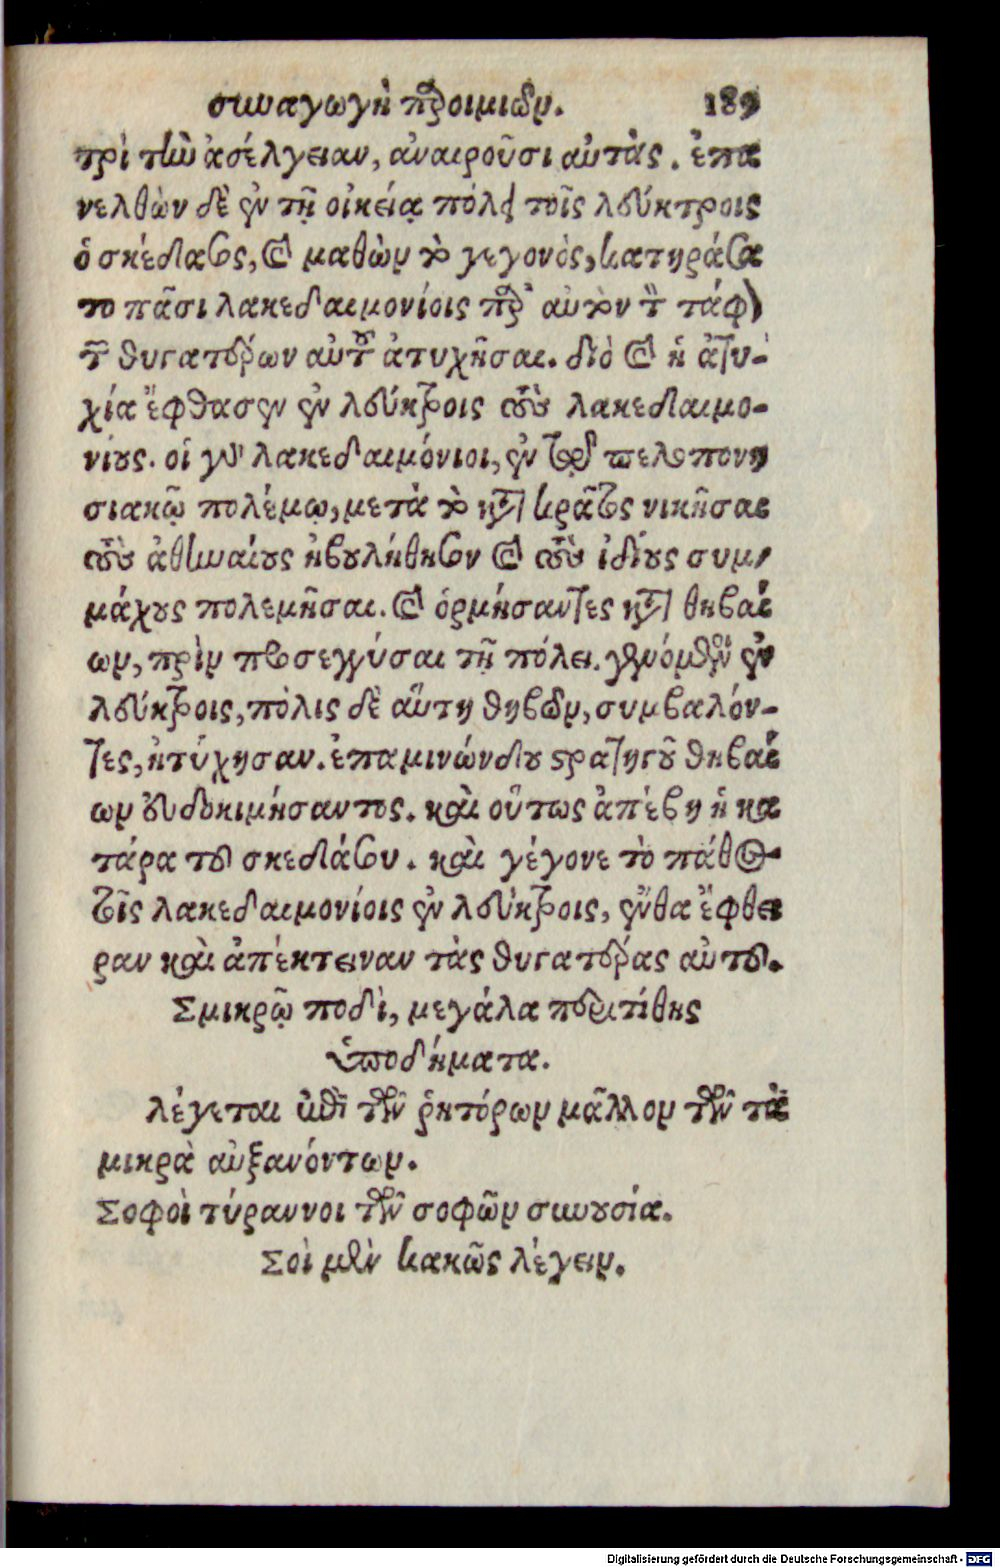 συναγωγὴ παροιμιῶν. 189
τρὶ τὴν ἀσέλγειαν, ἀναιροῦσι αὐτὰς. ἐπα
νελθὼν δὲ ἐν τῇ οἰκείᾳ πόλει τοῖς λεύκτροις
ὁ σκέδασος, καὶ μαθὼν τὸ γεγονὸς, κατηράσα
το πᾶσι λακεδαιμονίοις παρ' αὐτὸν τὸν τάφον
τῶν θυγατέρων αὐτοῦ ἀτυχῆσαι. διὸ καὶ ἡ ἀτυ-
χία ἔφθασεν ἐν λεύκτροις τοὺς λακεδαιμο-
νίους. οἱ γοῦν λακεδαιμόνιοι, ἐν τῷ πελοπονη
σιακῷ πολέμῳ, μετὰ τὸ κατὰ κράτος νικῆσαι
τοὺς ἀθηναίους ἠβουλήθησαν καὶ τοὺς ἰδίους συμ-
μάχους πολεμῆσαι. καὶ ὁρμήσαντες κατὰ θηβαί
ων, πρὶν προσεγγύσαι τῇ πόλει. γενόμενοι ἐν
λεύκτροις, πόλις δὲ αὕτη θηβῶν, συμβαλόν-
τες, ἠτύχησαν. ἐπαμινώνδου στρατηγοῦ θηβαί
ων εὐδοκιμήσαντος. καὶ οὕτως ἀπέβη ἡ κα
τάρα τοῦ σκεδάσου. καὶ γέγονε τὸ πάθος
τοῖς λακεδαιμονίοις ἐν λεύκτροις, ἔνθα ἔφθει
ραν καὶ ἀπέκτειναν τὰς θυγατέρας αὐτοῦ.
Σμικρῷ ποδὶ, μεγάλα περιτίθης
ὑποδήματα.
λέγεται ἐπὶ τῶν ῥητόρων μᾶλλον τῶν τὰ
μικρὰ αὐξανόντων.
Σοφοὶ τύραννοι τῶν σοφῶν συνουσία.
Σοὶ μὲν κακῶς λέγειν.
Digitalisierung gefördert durch die Deutsche Forschungsgemeinschaft - DFG